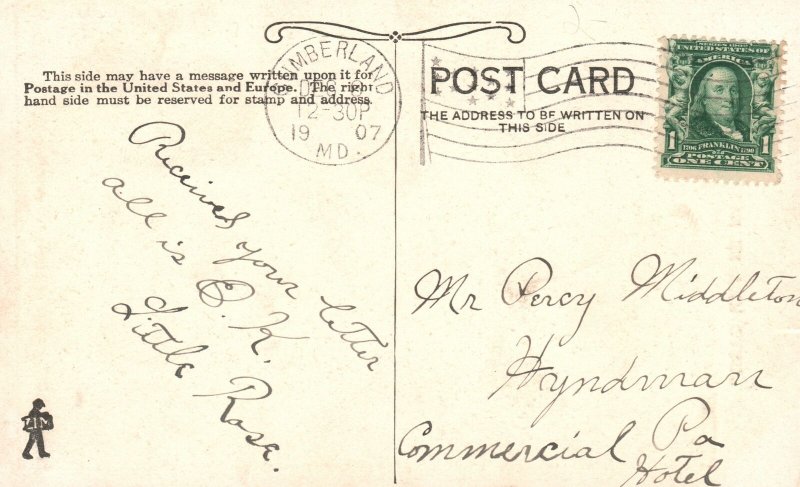 This side may have a message written upon it for
Postage in the United States and Europe. The right
hand side must be reserved for stamp and address.
CUMBERLAND
12-30P
1907
MD.
POST CARD
THE ADDRESS TO BE WRITTEN ON
THIS SIDE
SERIES 1902
UNITED STATES OF
AMERICA
1706 FRANKLIN 1790
POSTAGE
1 ONE CENT 1
Received your letter
all is O. K.
Little Rose.
Mr Percy Middleton
Hyndman
Commercial Pa
Hotel